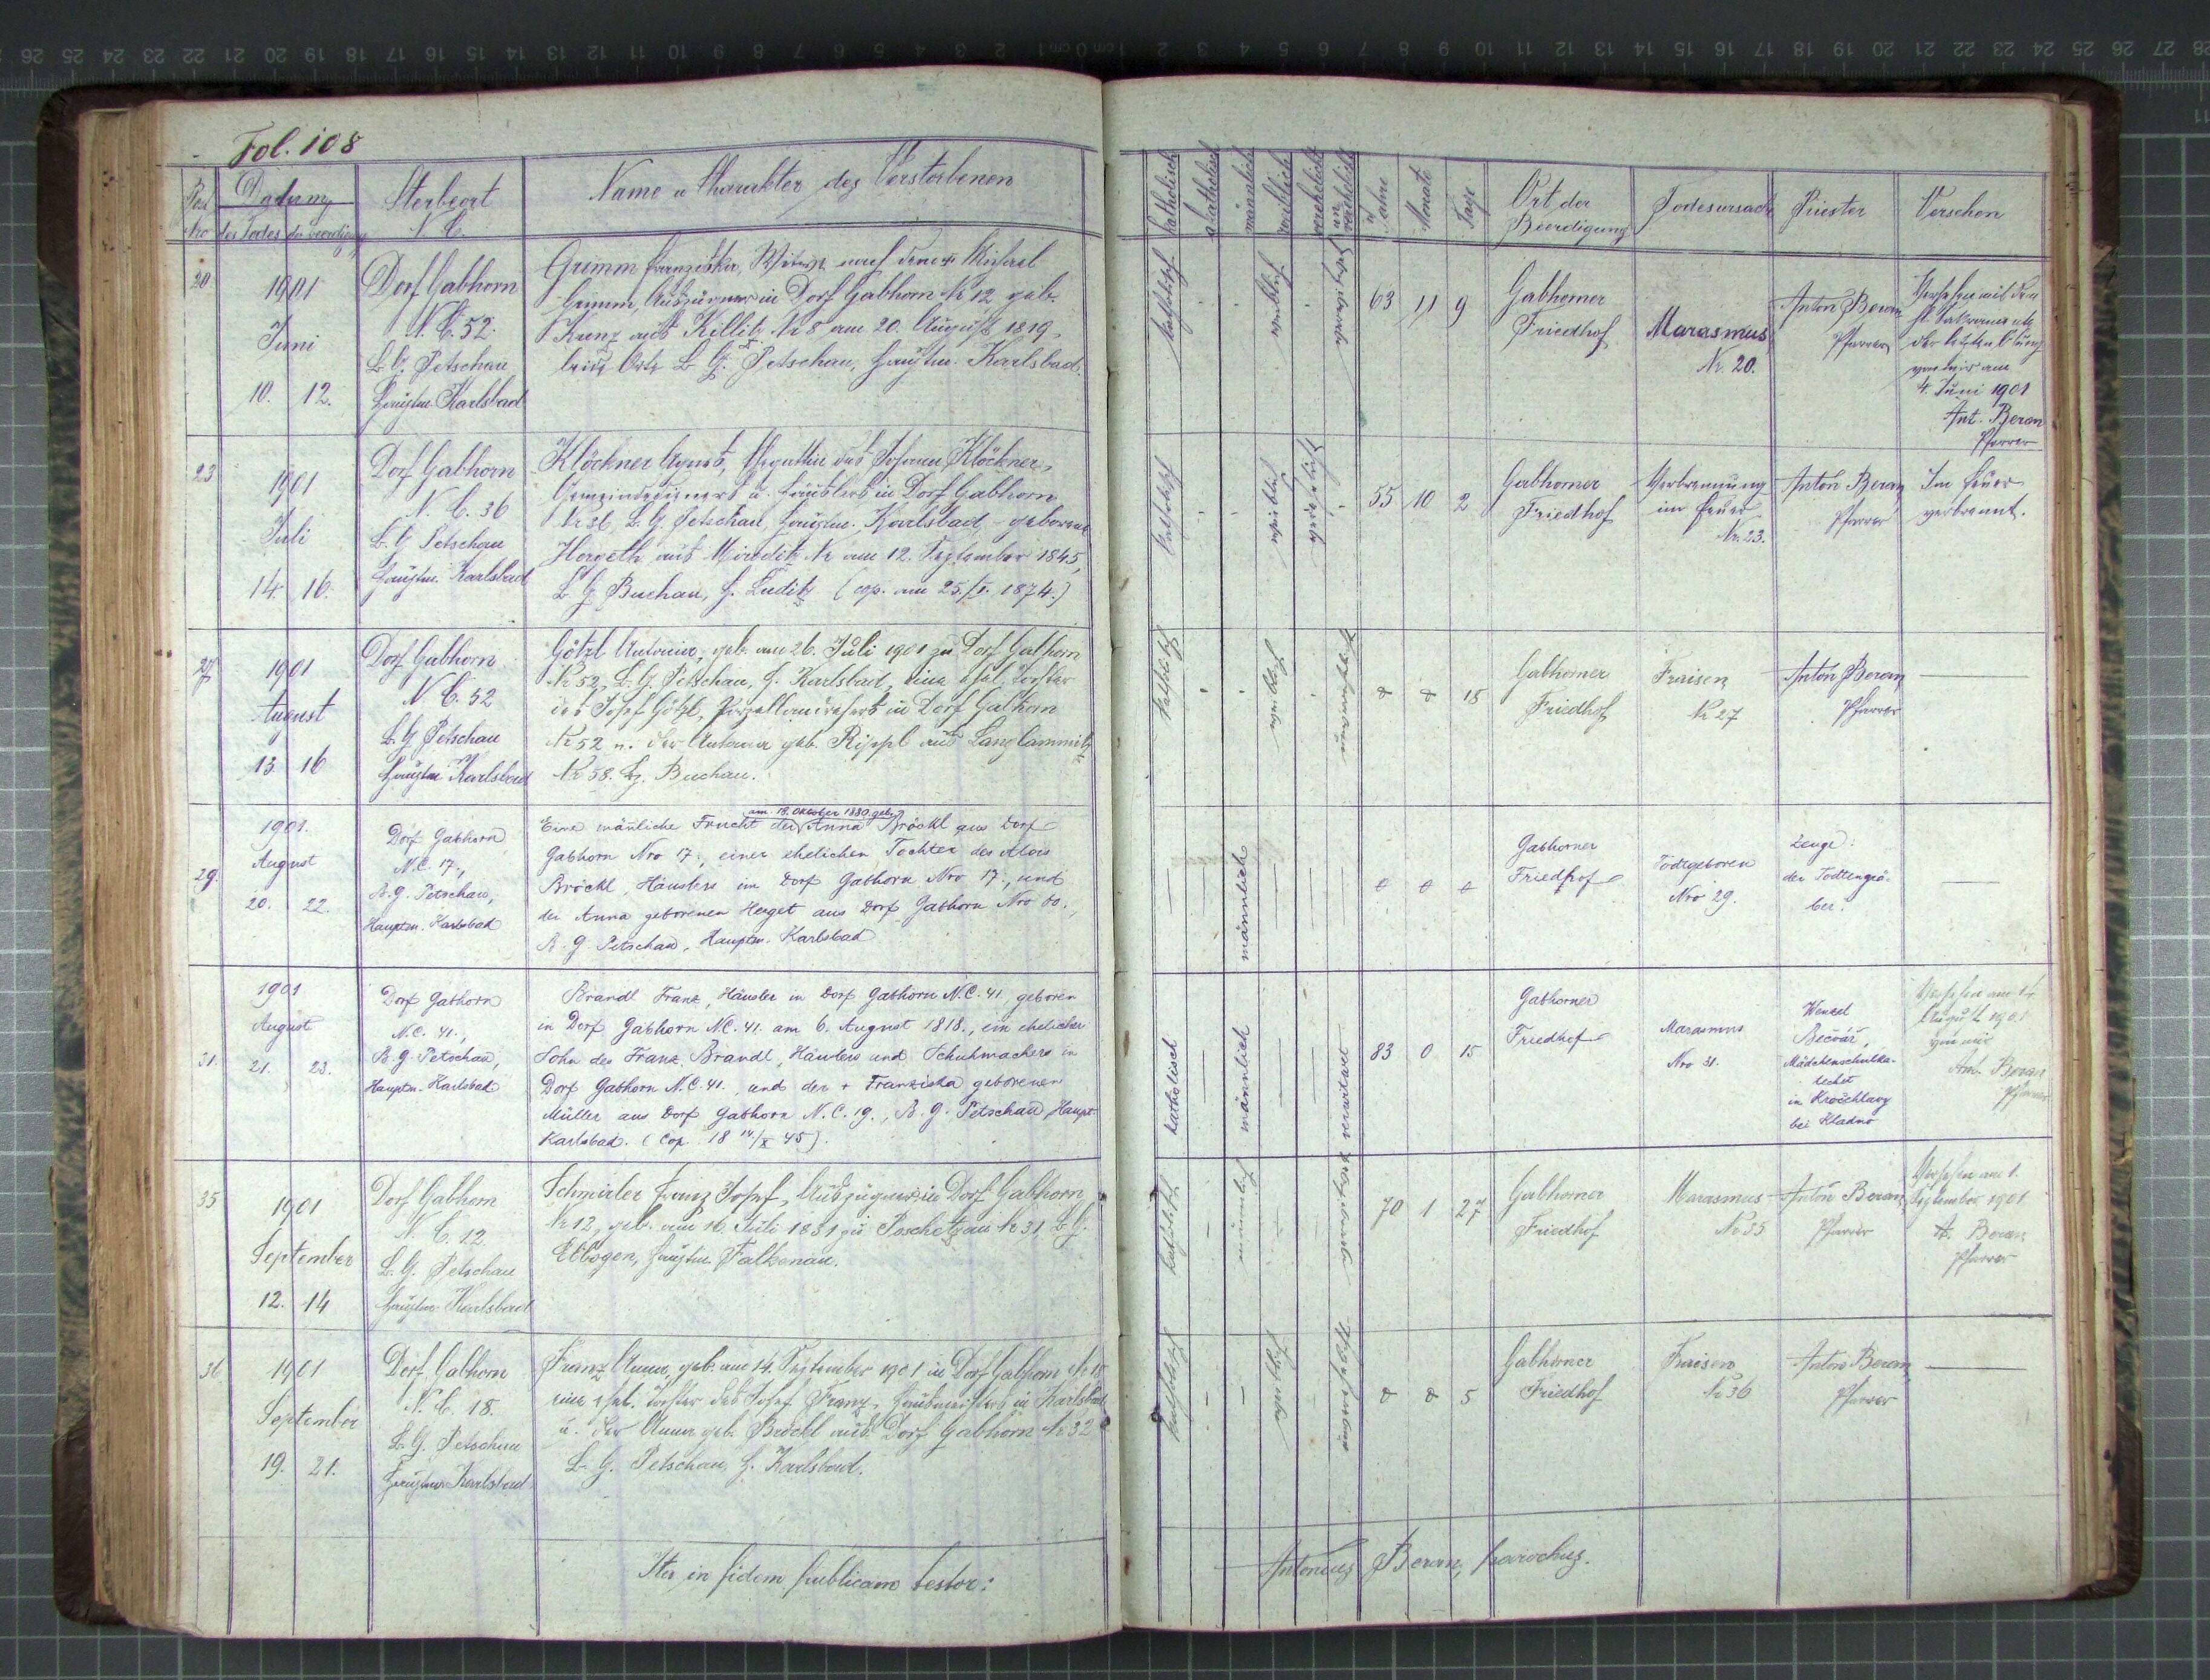 Fol. 108
Post Nro
Datum
des Todes der Beerdigung
Sterbeort
N. C.
Name u Charakter des Verstorbenen
katholisch
akatholisch
männlich
weiblich
verehelicht
unverehelicht
Jahre
Monate
Tage
Ort der
Beerdigung
Todesursache
Priester
Versehen
20
1901
Juni
10. 12.
Dorf Gabhorn
N. C. 52.
B. G. Petschau
Hauptm. Karlsbad
Grimm Franziska, Witwe nach dem + Michael
Grimm, Auszügner in Dorf Gabhorn Nr 12 geb.
Kunz aus Nr 8 am 20. August 1819,
B. G. Petschau, Hauptm. Karlsbad.
katholisch
weiblich
verwitwet
63 11 9
Gabhorner
Friedhof
Marasmus
Nr. 20.
Anton Beran
Pfarrer
Versehen mit den
hl. Sakramenten
der letzten Ölung
von mir am
4. Juni 1901
Ant. Beran
Pfarrer
23
1901
Juli
14. 16.
Dorf Gabhorn
N. C. 36
B. G. Petschau
Hauptm. Karlsbad
Klöckner Agnes, Ehegattin des Johann Klöckner,
Gemeindedieners u. Häuslers in Dorf Gabhorn
Nr 36, B. G. Petschau, Hauptm. Karlsbad - geborene
Hergeth aus Nr am 12. September 1845,
B. G. Buchau, H. Luditz (cop. am 25./ 1874.)
katholisch
weiblich
verehelicht
55 10 2
Gabhorner
Friedhof
Verbrennung
im Feuer
Nr. 23.
Anton Beran
Pfarrer
Im Feuer
verbrannt.
27
1901
August
13. 16
Dorf Gabhorn
N. C. 52
B. G. Petschau
Hauptm. Karlsbad
Götzl Antonia, geb. am 26. Juli 1901 zu Dorf Gabhorn
Nr 52, B. G. Petschau, H. Karlsbad, eine ehel. Tochter
des Josef Götzl, Porzellandrehers in Dorf Gabhorn
Nr 52 u. der Antonia geb. Rippl aus Langlammitz
Nr 58. Bz. Buchau.
katholisch
weiblich
unverehelicht
15
Gabhorner
Friedhof
Fraisen
Nr 27
Anton Beran
Pfarrer
29.
1901.
August
20. 22.
Dorf Gabhorn
N.C. 17.,
B. G. Petschau,
Hauptm. Karlsbad
am 18. Oktober 1880 geb.
Eine mänliche Frucht der Anna Bröckl aus Dorf
Gabhorn Nro 17., einer ehelichen Tochter des Alois
Bröckl, Häuslers im Dorf Gabhorn Nro 17., und
der Anna geborenen Herget aus Dorf Gabhorn Nro 60.,
B. G. Petschau, Hauptm. Karlsbad
männlich
Gabhorner
Friedhof
Todtgeboren
Nro 29.
Zeuge:
der Todtengrä-
ber.
31.
1901
August
21. 23.
Dorf Gabhorn
N.C. 41.,
B. G. Petschau,
Hauptm. Karlsbad
Brandl Franz, Häusler in Dorf Gabhorn N.C. 41, geboren
in Dorf Gabhorn N.C. 41. am 6. August 1818., ein ehelicher
Sohn des Franz Brandl, Häuslers und Schuhmachers in
Dorf Gabhorn N.C. 41., und der + Franziska geborenen
Müller aus Dorf Gabhorn N.C. 19., B. G. Petschau, Haupt.
Karlsbad. (Cop. 18 14/X 45).
katholisch
männlich
verwitwet
83 0 15
Gabhorner
Friedhof
Marasmus
Nro 31.
Wenzel
Bečvář,
Mädchenschulka-
techet
in Kročehlavy
bei Kladno
Versehen am 14.
August 1901
von mir
Ant. Beran
Pfarrer
35
1901
September
12. 14
Dorf Gabhorn
N. C. 12
B. G. Petschau
Hauptm. Karlsbad
Schmirler Franz Josef, Auszügner in Dorf Gabhorn
Nr 12, geb. am 16. Juli 1831 zu Poschetzau Nr 31, B. G.
Elbogen, Hauptm. Falkenau.
katholisch
männlich
verwitwet
70 1 27
Gabhorner
Friedhof
Marasmus
Nr 35
Anton Beran
Pfarrer
Versehen am 1.
September 1901
A. Beran
Pfarrer
36
1901
September
19. 21.
Dorf Gabhorn
N. C. 18.
B. G. Petschau
Hauptm. Karlsbad
Franz Anna, geb. am 14. September 1901 in Dorf Gabhorn Nr 18
eine ehel. Tochter des Josef Franz, Hausmeisters in Karlsbad
u. der Anna geb. Bröckl aus Dorf Gabhorn Nr 32
B. G. Petschau, H. Karlsbad.
katholisch
weiblich
unverehelicht
5
Gabhorner
Friedhof
Fraisen
Nr 36
Anton Beran
Pfarrer
Ita in fidem publicam testor:
Antonius Beran, parochus.